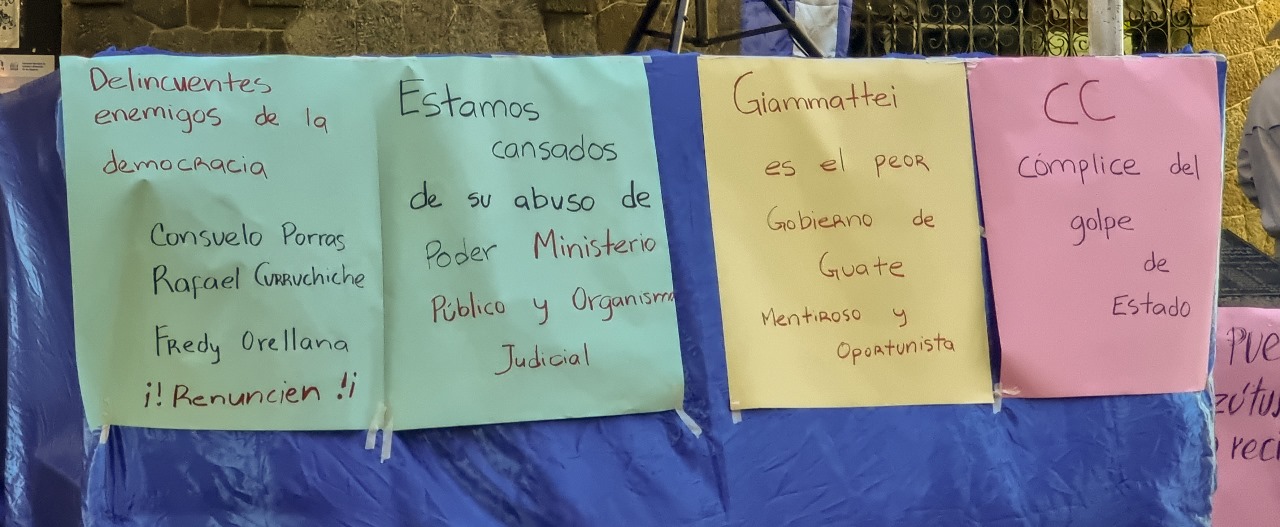 Delincuentes
enemigos de la
democracia
Consuelo Porras
Rafael Curruchiche
Fredy Orellana
¡! Renuncien !¡
Estamos
cansados
de su abuso de
Poder Ministerio
Público y Organismo
Judicial
Giammattei
es el peor
Gobierno de
Guate
Mentiroso y
Oportunista
CC
cómplice del
golpe
de
Estado